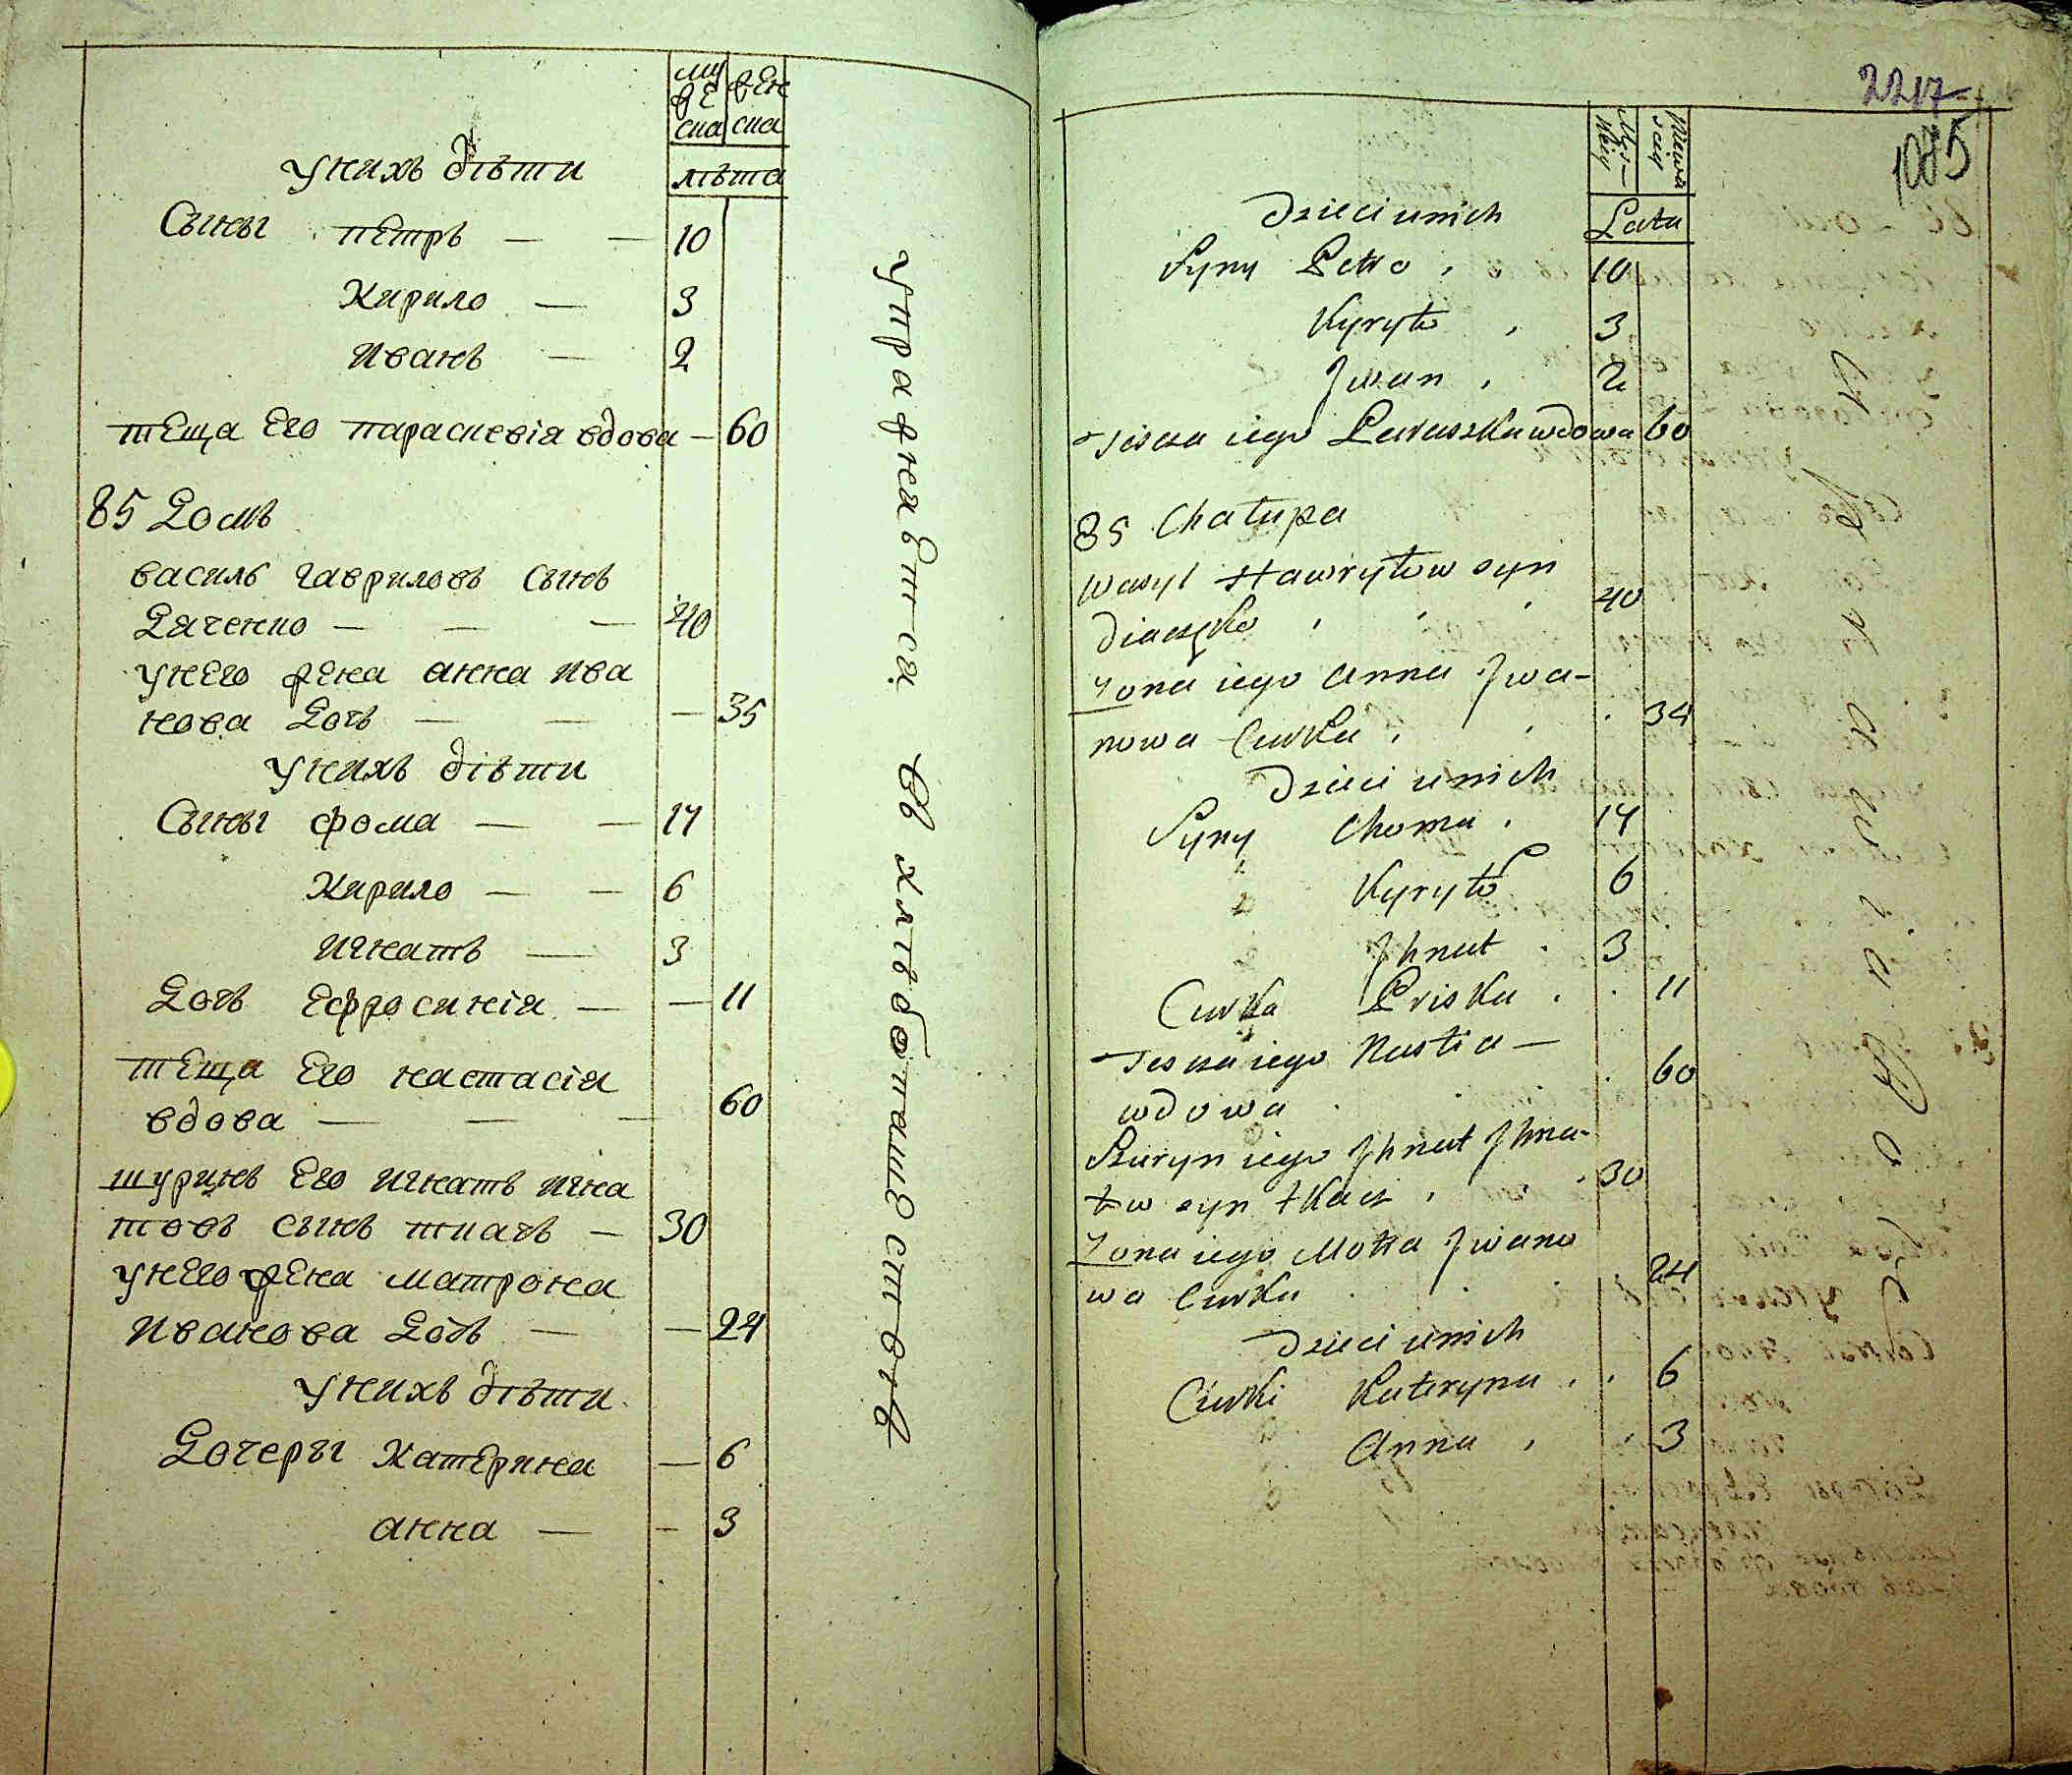 муже
ска
жен
ска
лѣта
у нихъ дѣти
Сыны петръ — — 10
Кирило — 3
Иванъ — 2
теща Его параскевія вдова — 60
85 Домъ
василь гавриловъ сынъ
Дяченко — — — 40
у нЕго жена анна ива
нова Дочь — — — 35
у нихъ дѣти
Сыны фома — — 14
Кирило — — 6
игнатъ — 3
Дочь Ефросинія — — 11
теща Его настасія
вдова — — — 60
шуринъ Его игнатъ игна
товъ сынъ ткачъ — 30
у нЕго жена матрона
Иванова Дочь — — 24
у нихъ дѣти
Дочеры Катерина — 6
анна — — 3
упражнается въ хлѣбопашествѣ
2217
1085
Męs-
kiey
Lata
Dzieci u nich
Syny Petro , 10
Kyryło , 3
Jwan , 2
Teszcza iego Paraszka wdowa 60
85 Chałupa
Wasyl Hawryłow syn
Diaczeko , , , 40
Zona iego Anna Jwa-
nowa Curka , , . 34
Dzieci u nich
Syny Choma . 14
Kyryło 6
Jhnat . 3
Curka Priska . . 11
Teszcza iego Nastia —
wdowa . . . 60
Szuryn iego Jhnat Jhna-
tow syn tkacz , . . 30
Zona iego Motra Jwano
wa Curka . . . 24
Dzieci u nich
Curki Kateryna . . 6
Anna , , 3